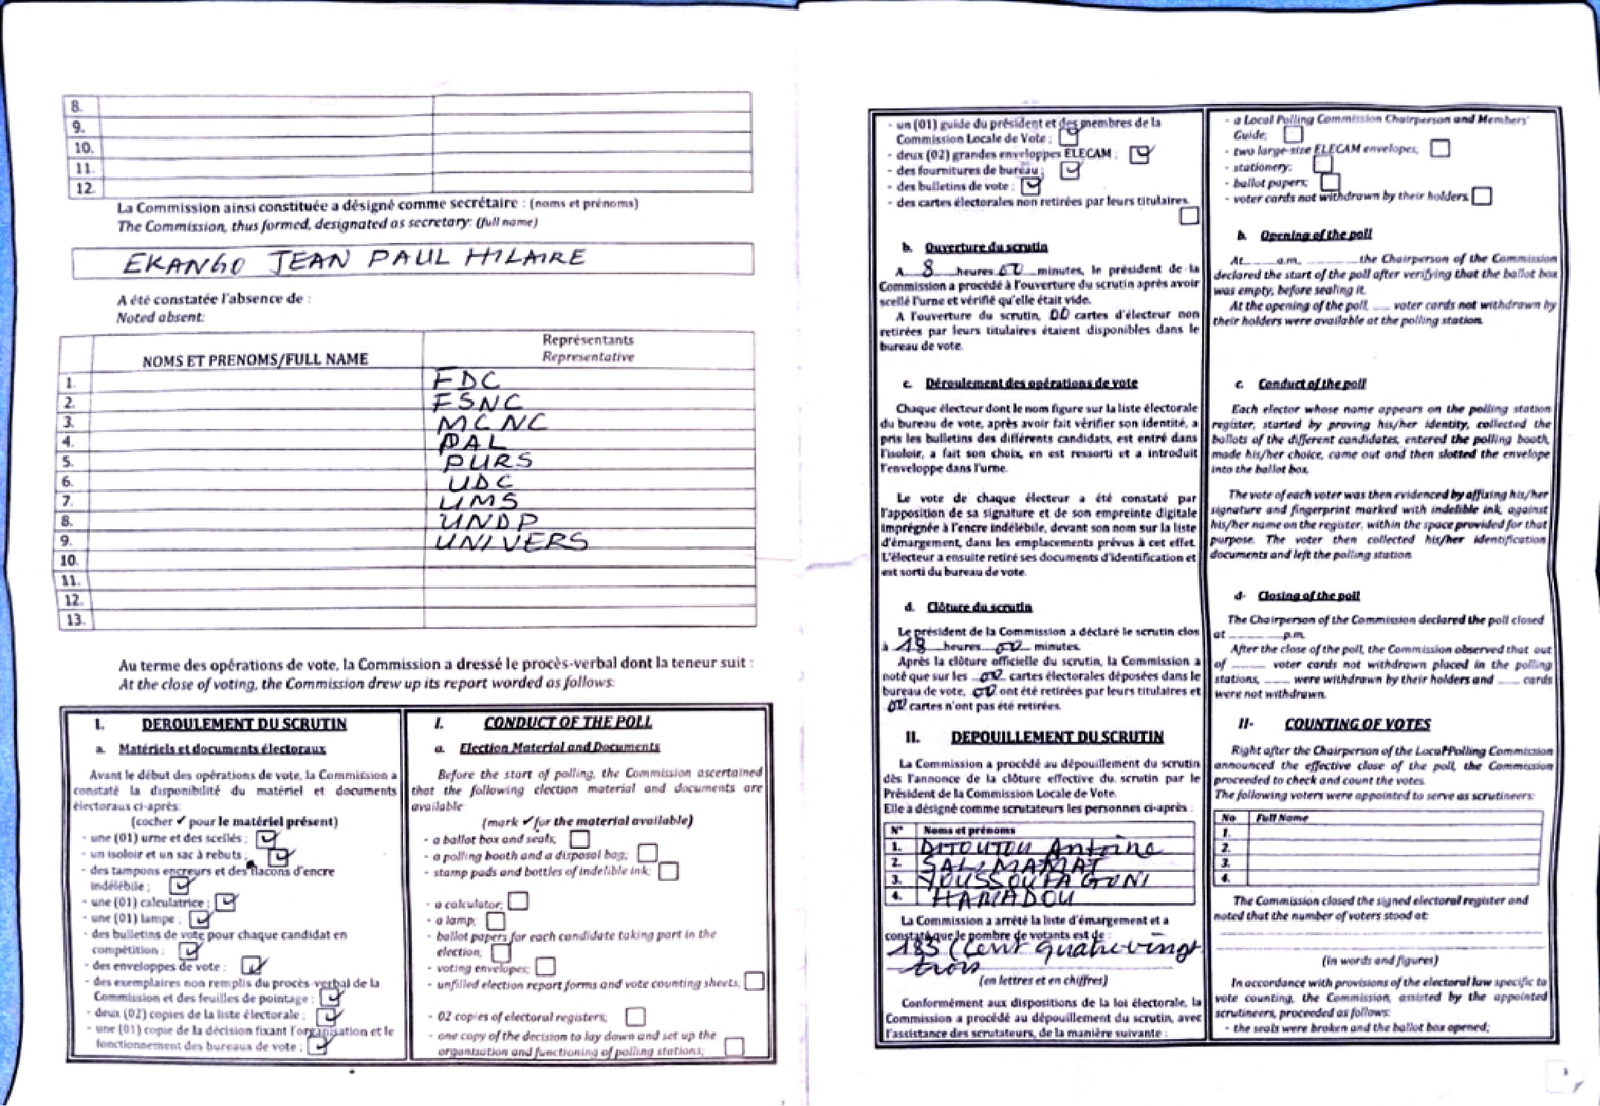 8.
9.
10.
11.
12.
La Commission ainsi constituée a désigné comme secrétaire : (noms et prénoms)
The Commission, thus formed, designated as secretary: (full name)
EKANGO JEAN PAUL HILAIRE
A été constatée l'absence de :
Noted absent:
NOMS ET PRENOMS/FULL NAME
Représentants
Representative
1. FDC
2. FSNC
3. MCNC
4. PAL
5. PURS
6. UDC
7. UMS
8. UNDP
9. UNIVERS
10.
11.
12.
13.
Au terme des opérations de vote, la Commission a dressé le procès-verbal dont la teneur suit :
At the close of voting, the Commission drew up its report worded as follows:
I. DEROULEMENT DU SCRUTIN
a. Matériels et documents électoraux
Avant le début des opérations de vote, la Commission a
constaté la disponibilité du matériel et documents
électoraus ci-après:
(cocher ✓ pour le matériel présent)
- une (01) urne et des scellés ;
- un isoloir et un sac à rebuts ;
- des tampons encreurs et des flacons d'encre
indélébile ;
- une (01) calculatrice ;
- une (01) lampe ;
- des bulletins de vote pour chaque candidat en
compétition ;
- des enveloppes de vote ;
- des exemplaires non remplis du procès-verbal de la
Commission et des feuilles de pointage ;
- deux (02) copies de la liste électorale ;
- une (01) copie de la décision fixant l'organisation et le
fonctionnement des bureaux de vote ;
I. CONDUCT OF THE POLL
a. Election Material and Documents
Before the start of polling, the Commission ascertained
that the following election material and documents are
available
(mark ✓ for the material available)
- a ballot box and seals;
- a polling booth and a disposal bag;
- stamp pads and bottles of indelible ink;
- a calculator;
- a lamp;
- ballot papers for each candidate taking part in the
election;
- voting envelopes;
- unfilled election report forms and vote counting sheets;
- 02 copies of electoral registers;
- one copy of the decision to lay down and set up the
organisation and functioning of polling stations;
- un (01) guide du président et des membres de la
Commission Locale de Vote ;
- deux (02) grandes enveloppes ELECAM ;
- des fournitures de bureau ;
- des bulletins de vote ;
- des cartes électorales non retirées par leurs titulaires.
b. Ouverture du scrutin
A 8 heures 00 minutes, le président de la
Commission a procédé à l'ouverture du scrutin après avoir
scellé l'urne et vérifié qu'elle était vide.
A l'ouverture du scrutin, 00 cartes d'électeur non
retirées par leurs titulaires étaient disponibles dans le
bureau de vote.
c. Déroulement des opérations de vote
Chaque électeur dont le nom figure sur la liste électorale
du bureau de vote, après avoir fait vérifier son identité, a
pris les bulletins des différents candidats, est entré dans
l'isoloir, a fait son choix, en est ressorti et a introduit
l'enveloppe dans l'urne.
Le vote de chaque électeur a été constaté par
l'apposition de sa signature et de son empreinte digitale
imprégnée à l'encre indélébile, devant son nom sur la liste
d'émargement, dans les emplacements prévus à cet effet.
L'électeur a ensuite retiré ses documents d'identification et
est sorti du bureau de vote.
d. Clôture du scrutin
Le président de la Commission a déclaré le scrutin clos
à 18 heures 00 minutes.
Après la clôture officielle du scrutin, la Commission a
noté que sur les 00 cartes électorales déposées dans le
bureau de vote, 00 ont été retirées par leurs titulaires et
00 cartes n'ont pas été retirées.
II. DEPOUILLEMENT DU SCRUTIN
La Commission a procédé au dépouillement du scrutin
dès l'annonce de la clôture effective du scrutin par le
Président de la Commission Locale de Vote.
Elle a désigné comme scrutateurs les personnes ci-après :
N° Noms et prénoms
1. DITOUTOU Antoine
2. SALI MAMAT
3. YOUSSOUFA GONI
4. HAMADOU
La Commission a arrêté la liste d'émargement et a
constaté que le nombre de votants est de :
183 (Cent quatre vingt
trois
(en lettres et en chiffres)
Conformément aux dispositions de la loi électorale, la
Commission a procédé au dépouillement du scrutin, avec
l'assistance des scrutateurs, de la manière suivante :
- a Local Polling Commission Chairperson and Members'
Guide;
- two large-size ELECAM envelopes;
- stationery;
- ballot papers;
- voter cards not withdrawn by their holders.
b. Opening of the poll
At a.m, the Chairperson of the Commission
declared the start of the poll after verifying that the ballot box
was empty, before sealing it.
At the opening of the poll, voter cards not withdrawn by
their holders were available at the polling station.
c. Conduct of the poll
Each elector whose name appears on the polling station
register, started by proving his/her identity, collected the
ballots of the different candidates, entered the polling booth,
made his/her choice, came out and then slotted the envelope
into the ballot box.
The vote of each voter was then evidenced by affixing his/her
signature and fingerprint marked with indelible ink, against
his/her name on the register, within the space provided for that
purpose. The voter then collected his/her identification
documents and left the polling station.
d- Closing of the poll
The Chairperson of the Commission declared the poll closed
at p.m.
After the close of the poll, the Commission observed that out
of voter cards not withdrawn placed in the polling
stations, were withdrawn by their holders and cards
were not withdrawn.
II- COUNTING OF VOTES
Right after the Chairperson of the Local Polling Commission
announced the effective close of the poll, the Commission
proceeded to check and count the votes.
The following voters were appointed to serve as scrutineers:
No Full Name
1.
2.
3.
4.
The Commission closed the signed electoral register and
noted that the number of voters stood at:
(in words and figures)
In accordance with provisions of the electoral law specific to
vote counting, the Commission, assisted by the appointed
scrutineers, proceeded as follows:
- the seals were broken and the ballot box opened;